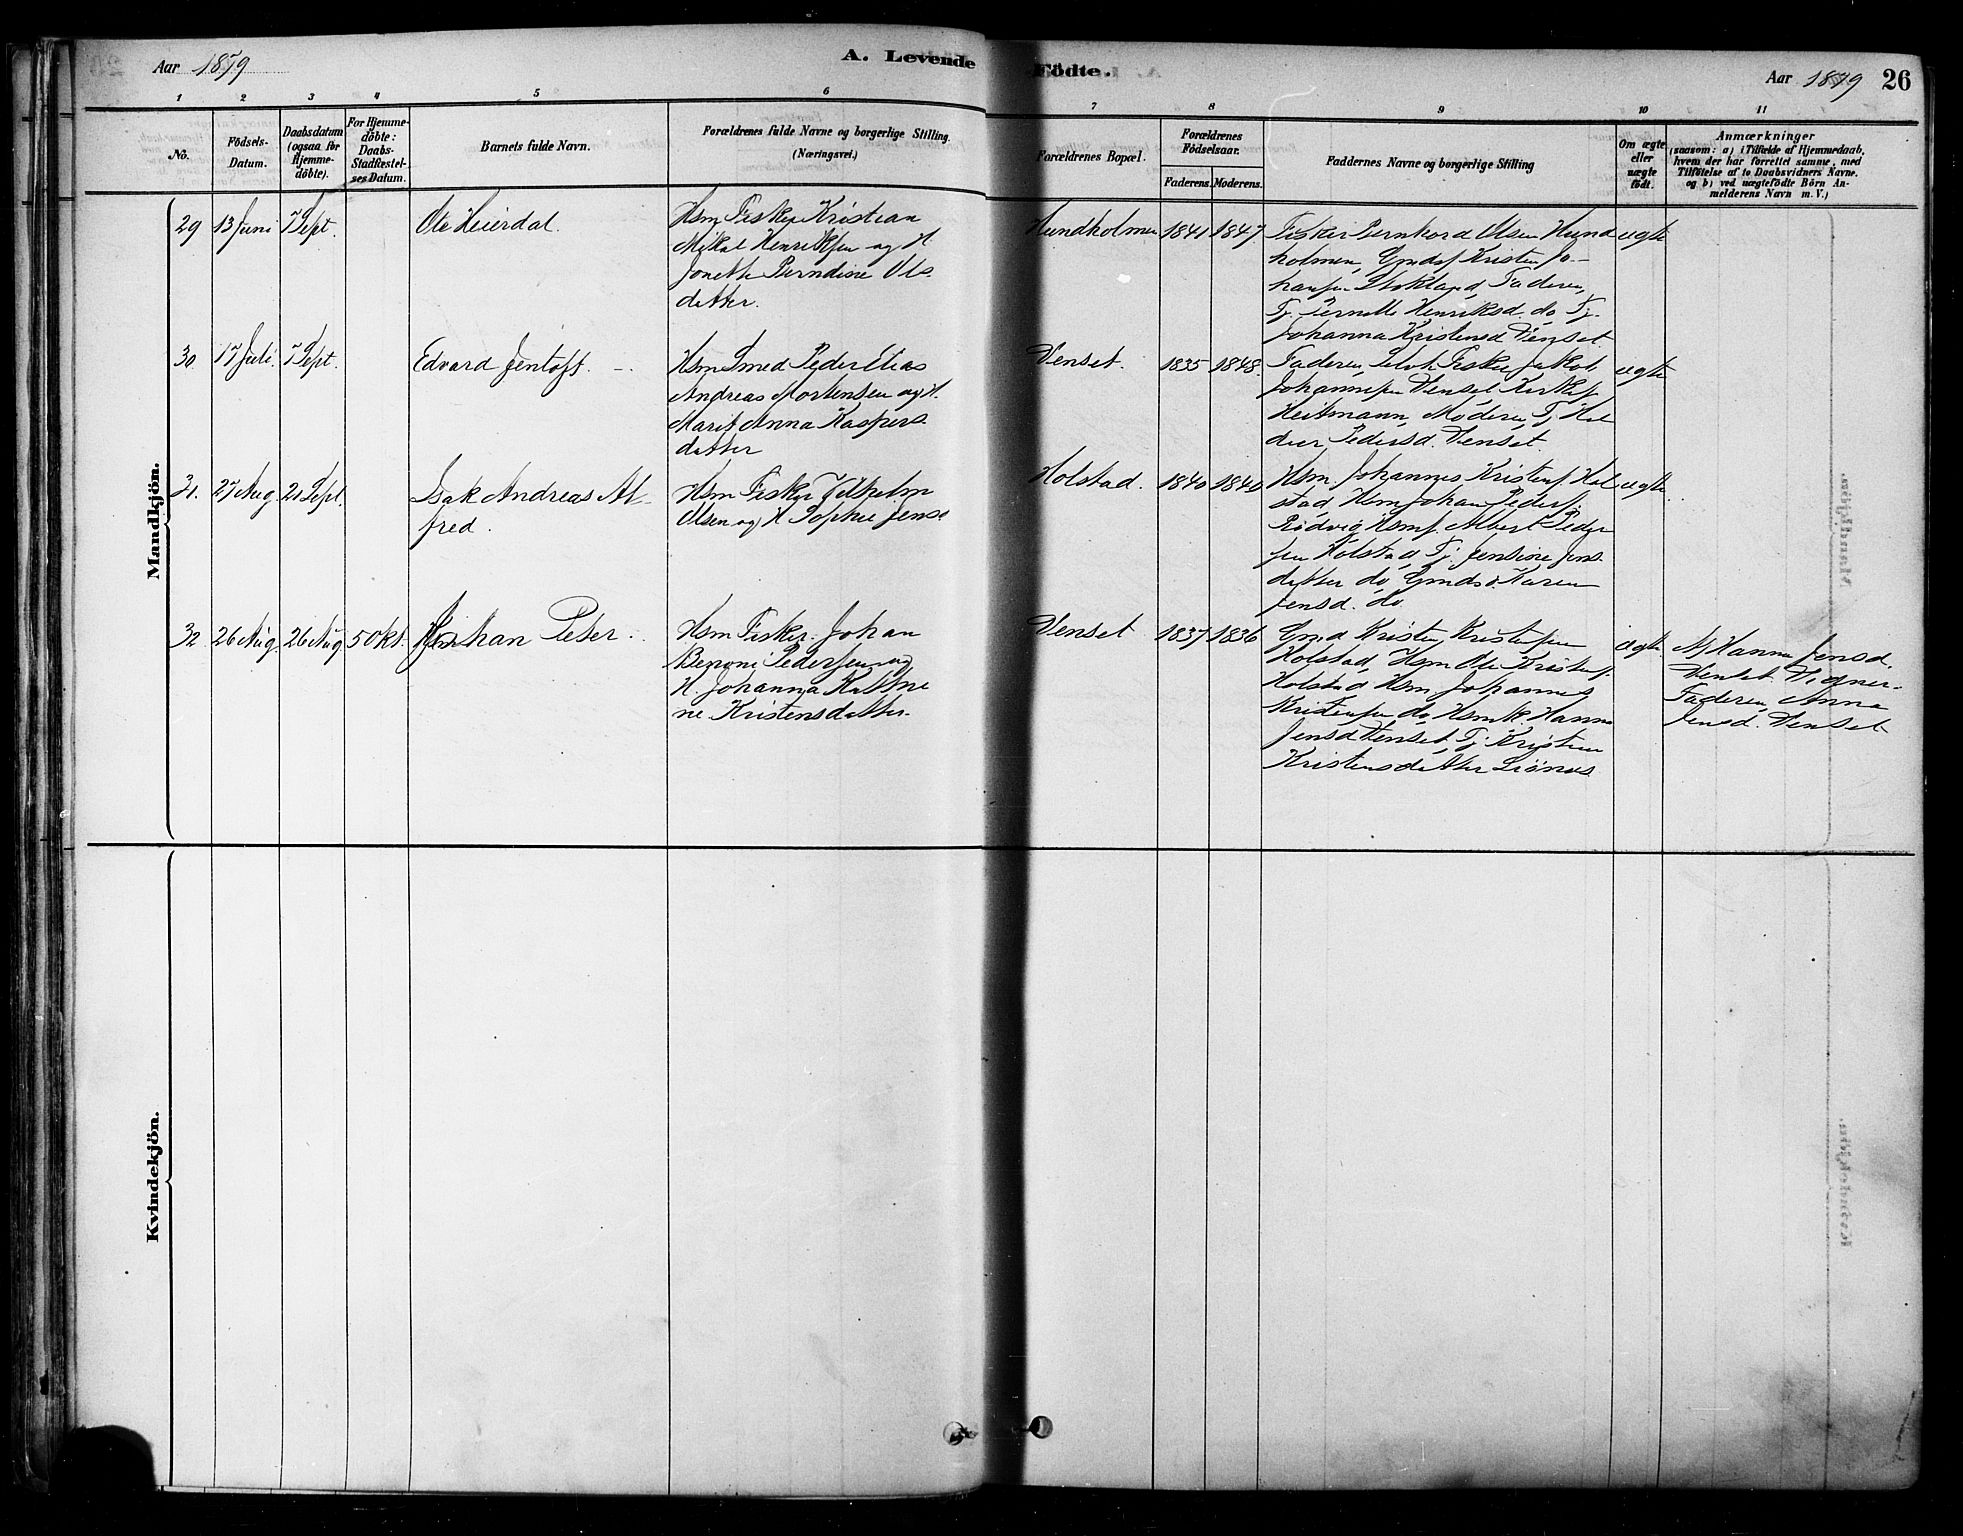 Aar 1879
A. Levende Födte.
Aar 1879 26
1 2 3 4 5 6 7 8 9 10 11
No.
Födsels-Datum.
Daabsdatum (ogsaa for Hjemme-döbte).
For Hjemme-döbte: Daabs-Stadfæstel-ses Datum.
Barnets fulde Navn.
Forældrenes fulde Navne og borgerlige Stilling. (Næringsvei.)
Forældrenes Bopæl.
Forældrenes Födselsaar.
Faderens. Moderens.
Faddernes Navne og borgerlige Stilling
Om ægte eller uægte födt.
Anmærkninger
(saasom: a) i Tilfælde af Hjemmedaab,
hvem der har forrettet samme, med
Tilföielse af to Daabsvidners Navne.
og b) ved uægtefödte Börn An-
melderens Navn m. V.)
Mandkjön.
29 13 Juni 7 Sept. Ole Heierdal.
Hsm Fisker Kristian
Mikal Henriksen og H.
Joneth Berndine Ols
datter.
Hundholmen 1841 1847
Fisker Bernhard Olsen Hund
holmen, Gmds Kristen Jo-
hansen Stokland, Faderen,
Tj. Pernille Henriksd. do Tj.
Johanna Kristensd Venset
ægte
30 17 Juli. 7 Sept. Edvard Jentoft.
Hsm Smed Peder Elias
Andreas Mortensen og H.
Marit Anna Kaspers
datter
Venset. 1835 1848.
Faderen, Selv Fisker Jakob
Johannesen Venset Kirks.
Heitmann, Moderen, Tj.
Pedersd. Venset.
ægte
31. 27 Aug. 21 Sept. Isak Andreas Al-
fred.
Hsm Fisker Vilhelm
Olsen og H. Sophie Jensd
Holstad. 1840 1841
Hsm Johannes Kristens. Hol
stad, Hsm Johan Peders.
Rödvig Hsms. Albert Peder
sen Holstad, Tj. Jensine Jens
datter do, Gmds. Karen
Jensd. do
ægte
32 26 Aug. 26 Aug 5 Okt. Johan Peter.
Hsm Fisker. Johan
Benoni Pedersen og
H. Johanna Kathri
ne Kristensdatter.
Venset 1837 1836
Gmd Kristen Kristensen
Holstad, Hsm Ole Kristens.
Holstad Hsm Johannes
Kristensen do, Hsmk. Hanna
Jensd Venset, Tj. Kristine
Kristensdatter Liönes
ægte.
a) Hanna Jensd.
Venset. Vidner.
Faderen, Anna
Jensd. Venset
Kvindekjön.